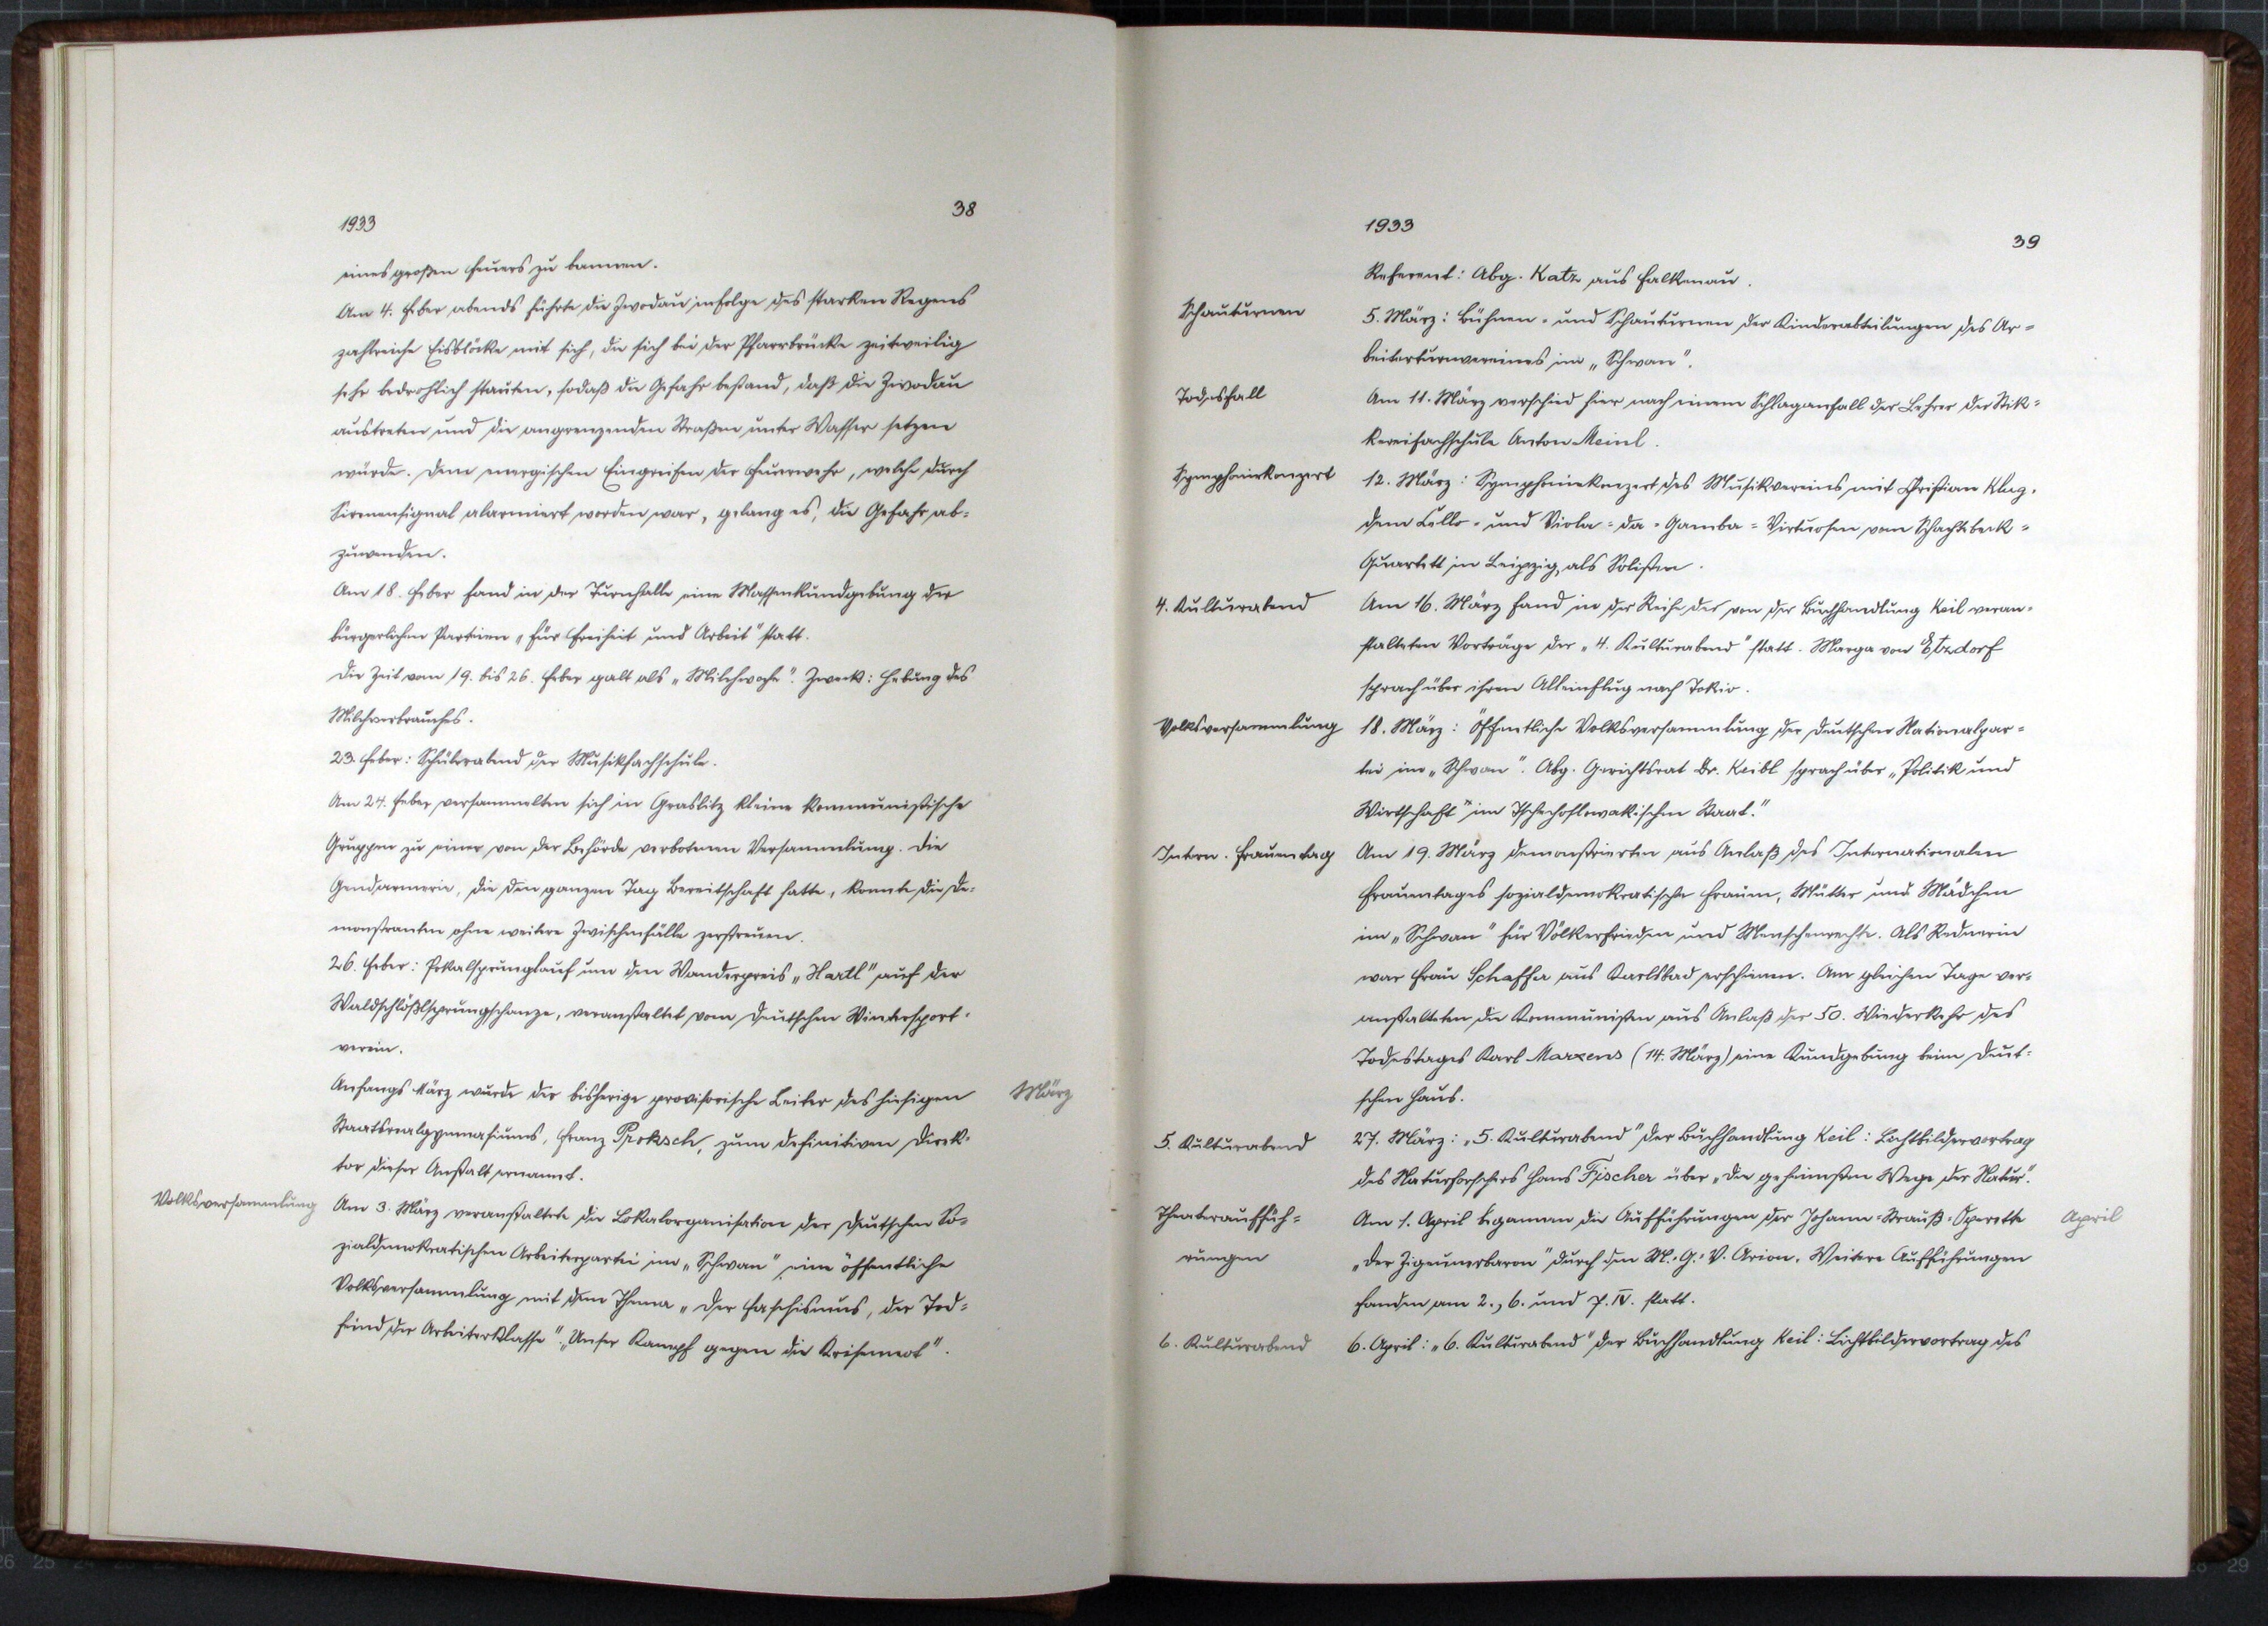 1933
38
eines großen Feuers zu bannen.
Am 4. Feber abends führte die Zwodau infolge des starken Regens
zahlreiche Eisblöcke mit sich, die sich bei der Pfarrbrücke zeitweilig
sehr bedrohlich stauten, sodaß die Gefahr bestand, daß die Zwodau
austreten und die angrenzenden Straßen unter Wasser setzen
würde. Dem energischen Eingreifen der Feuerwehr, welche durch
Sirenensignal alarmiert worden war, gelang es, die Gefahr ab-
zuwenden.
Am 18. Feber fand in der Turnhalle eine Massenkundgebung der
bürgerlichen Parteien „Für Freiheit und Arbeit" statt.
Die Zeit vom 19. bis 26. Feber galt als „Milchwoche". Zweck: Hebung des
Milchverbrauches.
23. Feber: Schülerabend der Musikfachschule.
Am 24. Feber versammelten sich in Graslitz kleine kommunistische
Gruppen zu einer von der Behörde verbotenen Versammlung. Die
Gendarmerie, die den ganzen Tag Bereitschaft hatte, konnte die De-
monstranten ohne weitere Zwischenfälle zerstreuen.
26. Feber: Pokalsprunglauf um den Wanderpreis „Hartl" auf der
Waldschlößlsprungschanze, veranstaltet vom Deutschen Wintersport-
verein.
Anfangs März wurde der bisherige provisorische Leiter des hiesigen
März
Staatsrealgymnasiums, Franz Proksch, zum definitiven Direk-
tor dieser Anstalt ernannt.
Volksversammlung
Am 3. März veranstaltete die Lokalorganisation der Deutschen So-
zialdemokratischen Arbeiterpartei im „Schwan" eine öffentliche
Volksversammlung mit dem Thema „Der Faschismus, der Tod-
feind der Arbeiterklasse". „Unser Kampf gegen die Krisennot".
1933
39
Referent: Abg. Katz aus Falkenau.
Schauturnen
5. März: Bühnen- und Schauturnen der Kinderabteilungen des Ar-
beiterturnvereines im „Schwan".
Todesfall
Am 11. März verschied hier nach einem Schlaganfall der Lehrer der Stik-
kereifachschule Anton Meinl.
Symphoniekonzert
12. März: Symphoniekonzert des Musikvereins mit Christian Klug,
dem Cello- und Viola-da-Gamba-Virtuosen vom Schachtebeck-
Quartett in Leipzig, als Solisten.
4. Kulturabend
Am 16. März fand in der Reihe der von der Buchhandlung Keil veran-
stalteten Vorträge der „4. Kulturabend" statt. Marga von Etzdorf
sprach über ihren Alleinflug nach Tokio.
Volksversammlung
18. März: Öffentliche Volksversammlung der Deutschen Nationalpar-
tei im „Schwan". Abg. Gerichtsrat Dr. Keibl sprach über „Politik und
Wirtschaft" im Tschechoslowakischen Staat."
Intern. Frauentag
Am 19. März demonstrierten aus Anlaß des Internationalen
Frauentages sozialdemokratische Frauen, Mütter und Mädchen
im „Schwan" für Völkerfrieden und Menschenrechte. Als Rednerin
war Frau Schaffer aus Karlsbad erschienen. Am gleichen Tage ver-
anstalteten die Kommunisten aus Anlaß der 50. Wiederkehr des
Todestages Karl Marxens (14. März) eine Kundgebung beim Deut-
schen Haus.
5. Kulturabend
27. März: „5. Kulturabend" der Buchhandlung Keil: Lichtbildervortrag
des Naturforschers Hans Fischer über „Die geheimsten Wege der Natur".
Theaterauffüh-
rungen
Am 1. April begannen die Aufführungen der Johann-Strauß-Operette
April
„Der Zigeunerbaron" durch den M.-G.-V. Arion. Weitere Aufführungen
fanden am 2., 6. und 7. IV. statt.
6. Kulturabend
6. April: „6. Kulturabend" der Buchhandlung Keil: Lichtbildervortrag des
26 25 24 23 22
28 29